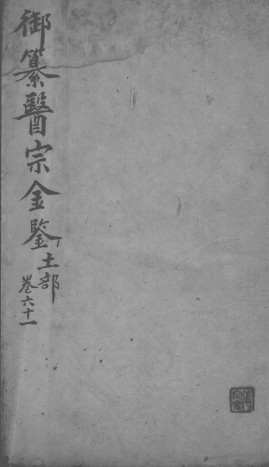 御纂醫宗金鑒土部
卷六十一